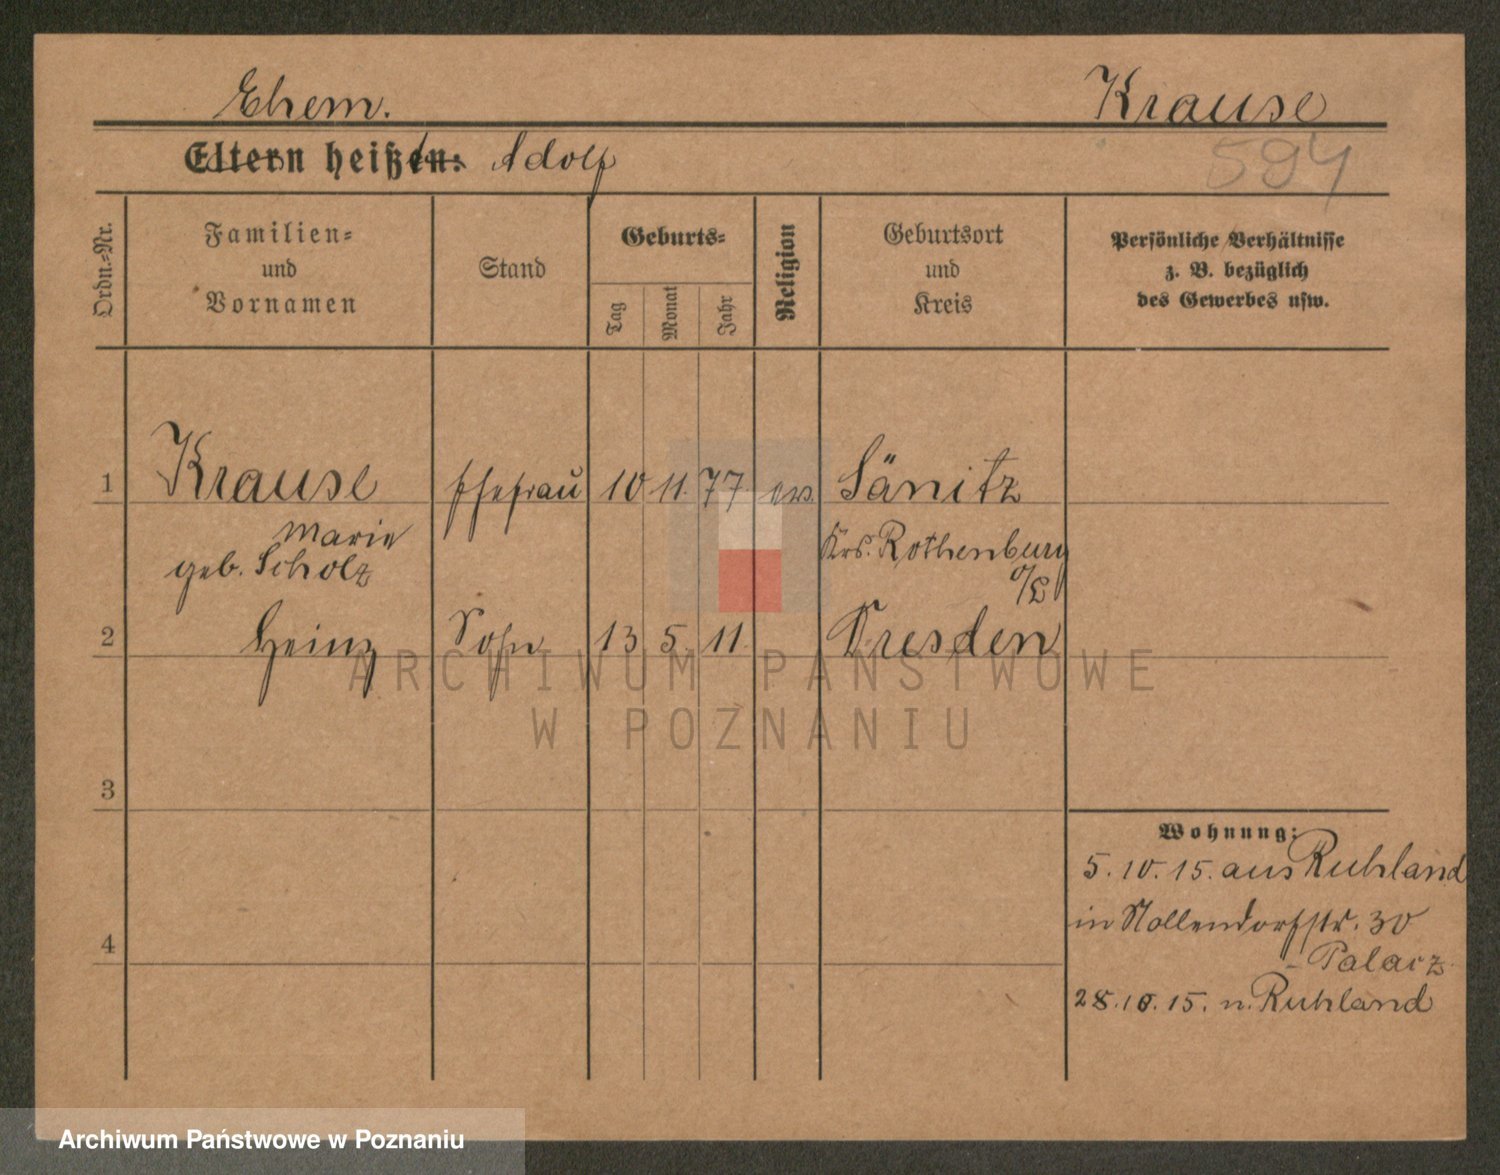 Ehem. Krause
Eltern heißt: Adolf
594
Ordn.-Nr.
Familien-
und
Vornamen
Stand
Geburts-
Tag
Monat
Jahr
Religion
Geburtsort
und
Kreis
Persönliche Verhältnisse
z. B. bezüglich
des Gewerbes usw.
1 Krause Ehefrau 10 11. 77 ev. Sänitz
Marie
geb. Scholz
Krs. Rothenburg
o/L
2 Heinz Sohn 13 5 11. Dresden
3
4
Wohnung:
5. 10. 15. aus Ruhland
in Nollendorfstr. 30
- Palacz.
28.10.15. n. Ruhland
ARCHIWUM PAŃSTWOWE
W POZNANIU
Archiwum Państwowe w Poznaniu